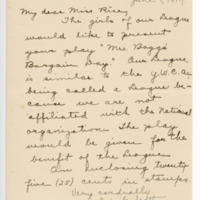 My dear Miss Rice,
The girls of our League
would like to present
your play "Mrs. Bagg's
Bargain Day." Our League
is similar to the Y.W.C.A.
being called a League be-
cause we are not
affiliated with the National
organization. The play
would be given for the
benefit of the League.
Am enclosing twenty
five (25) cents in stamps.
Very cordially